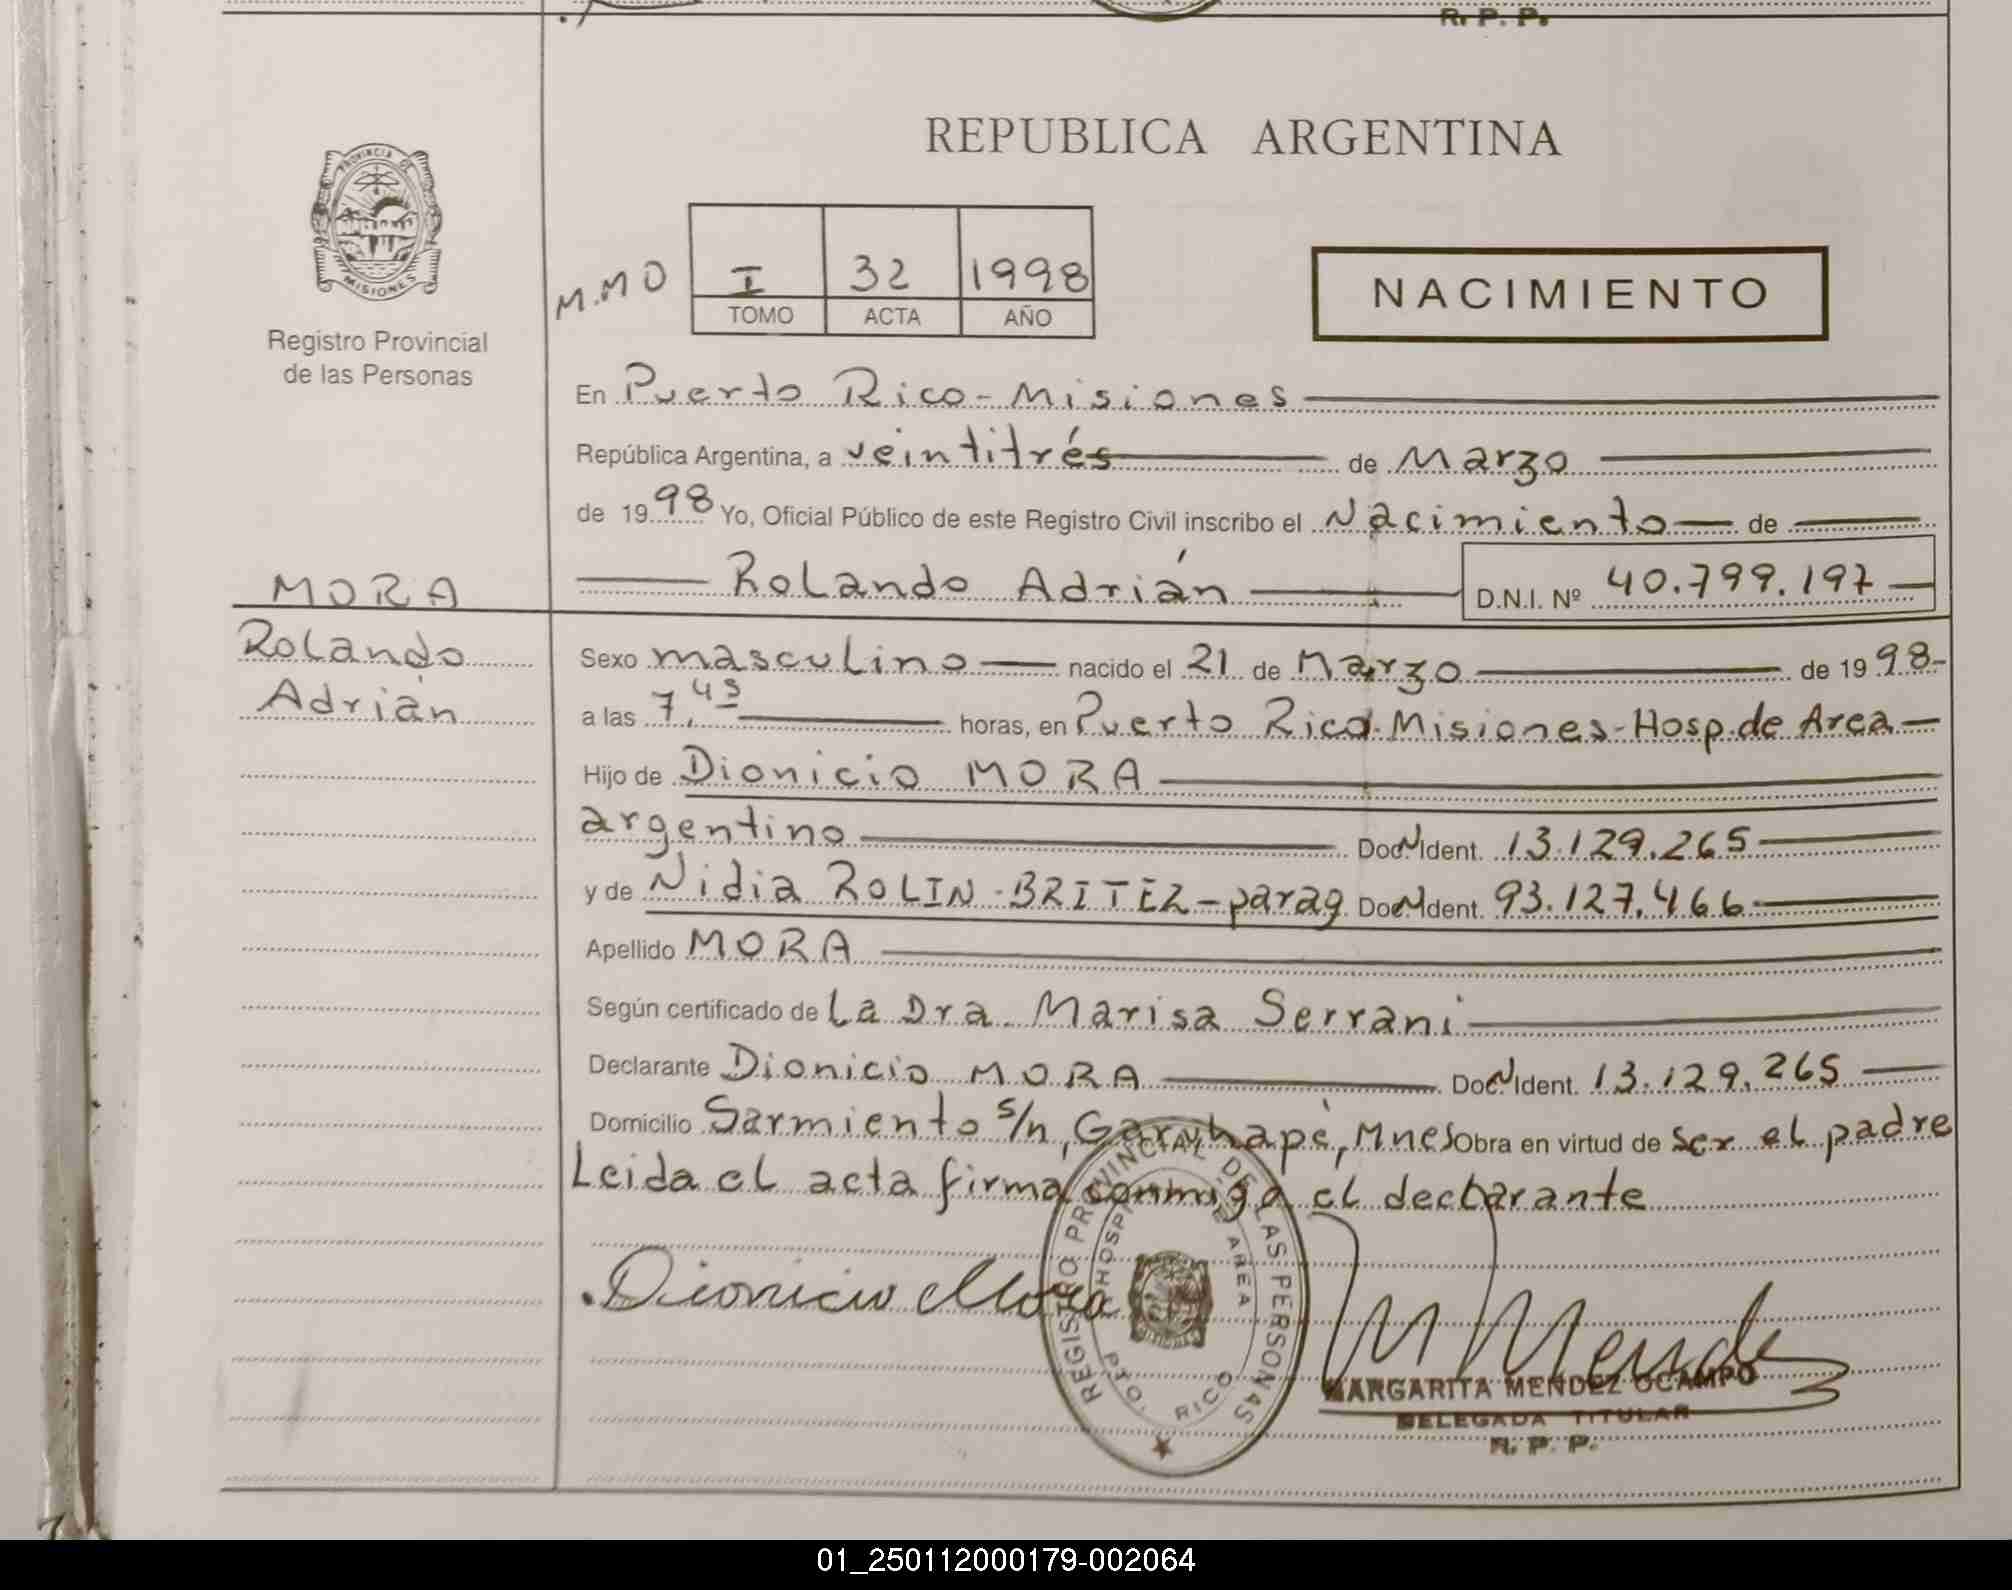 R. P. P.
REPUBLICA ARGENTINA
PROVINCIA DE
MISIONES
Registro Provincial
de las Personas
M.M O
I 32 1998
TOMO ACTA AÑO
NACIMIENTO
En Puerto Rico - Misiones
República Argentina, a veintitrés de Marzo
de 1998 Yo, Oficial Público de este Registro Civil inscribo el Nacimiento de
Rolando Adrián D.N.I. Nº 40.799.197
MORA
Rolando
Adrián
Sexo masculino nacido el 21 de Marzo de 1998-
a las 7,45 horas, en Puerto Rico-Misiones-Hosp.de Area
Hijo de Dionicio MORA
argentino Doc.N Ident. 13.129.265
y de Nidia ROLIN-BRITEZ-parag Doc.N Ident. 93.127.466
Apellido MORA
Según certificado de La Dra. Marisa Serrani
Declarante Dionicio MORA Doc.N Ident. 13.129.265
Domicilio Sarmiento s/n, Garuhapé, Mnes Obra en virtud de ser el padre
Leida el acta firma conmigo el declarante
Dionicio Mora
REGISTRO PROVINCIAL DE LAS PERSONAS
HOSPI DE AREA
PTO. RICO
M Mendez
MARGARITA MENDEZ OCAMPO
DELEGADA TITULAR
R. P. P.
01_250112000179-002064